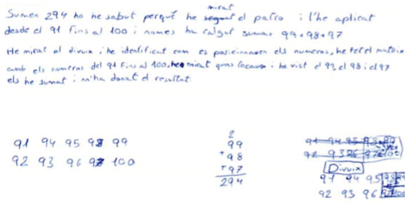 mirat
Sumen 294 ho he sabut perquè he seguit el patro i l'he aplicat
desde el 91 fins al 100 i nomes ha calgut sumar 99+98+97
He mirat el divuix i he identificat com es posicionaven els numeros, he fet el mateix
amb els numeros del 91 fins al 100, he mirat i he vist el 99, el 98 i el 97
els he sumat i m'ha donat el resultat.
91 94 95 98 99
92 93 96 97 100
2
99
+98
+97
294
91 94 95 98 99
92 93 96 97 100
Divuix
91 94 95 98 99
92 93 96 97 100